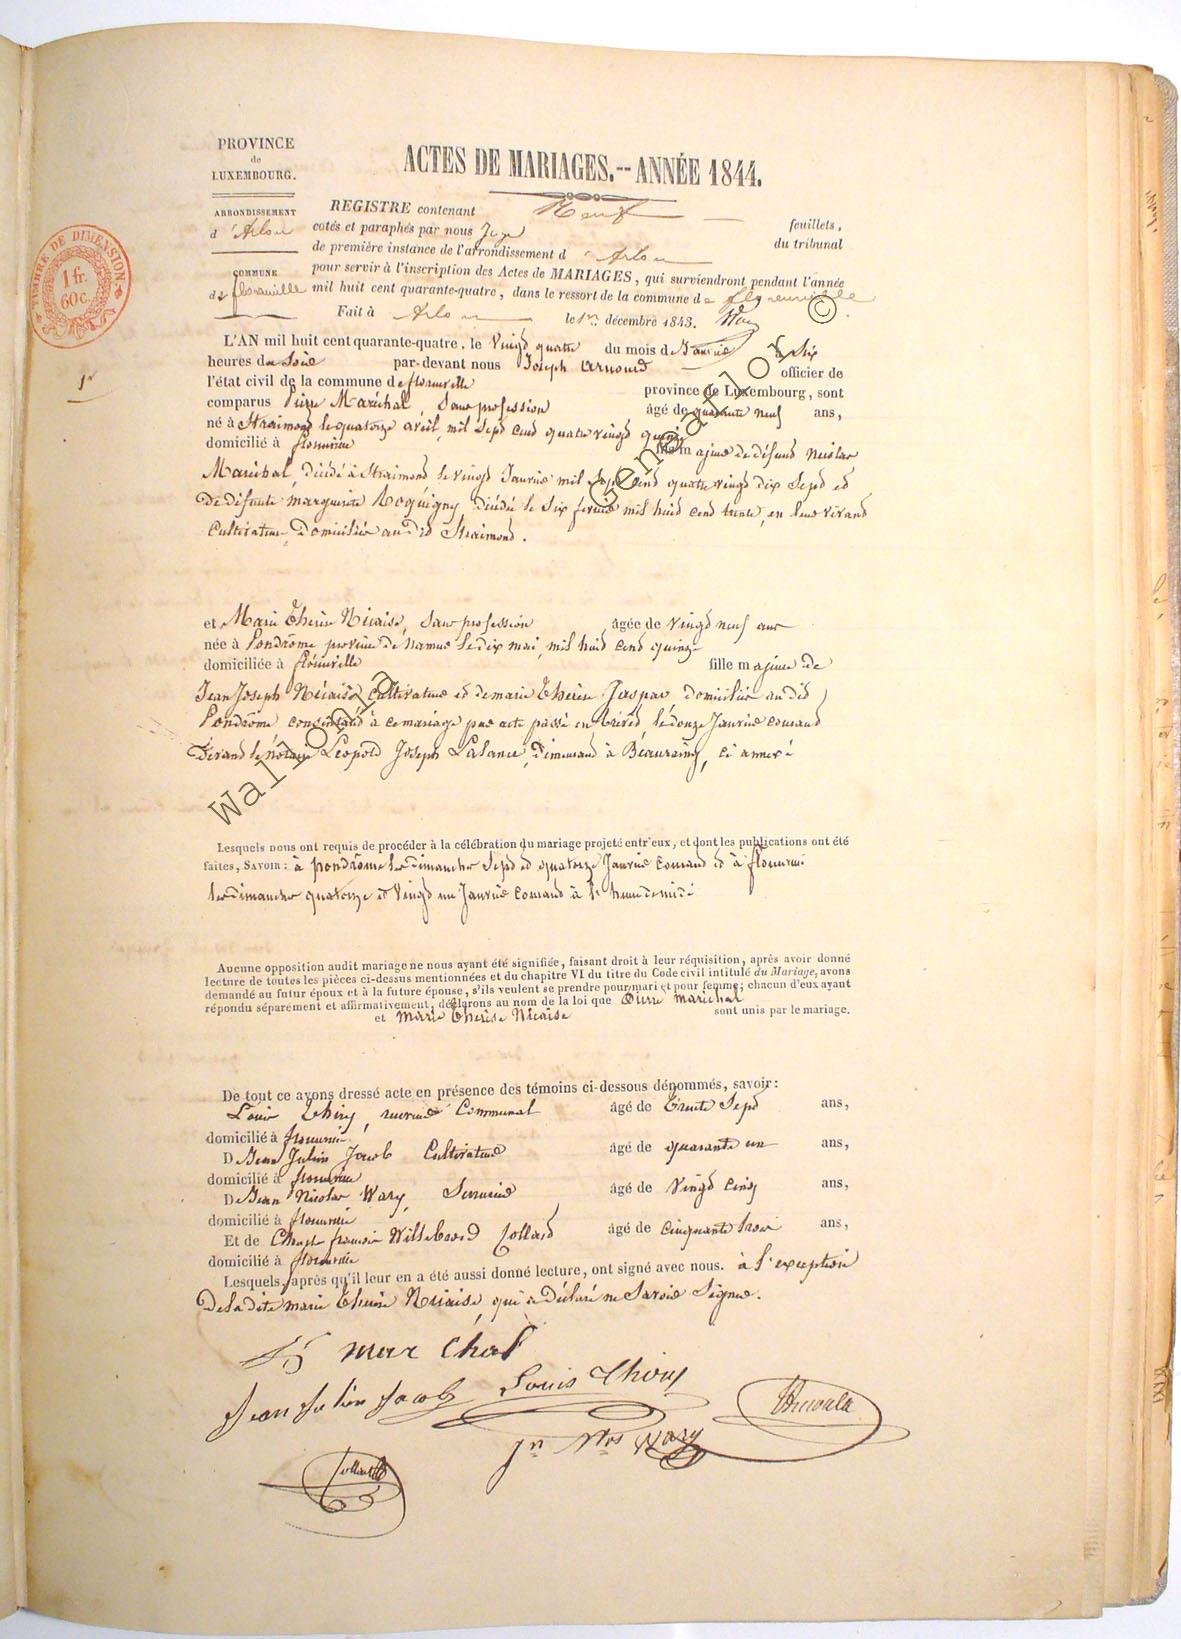 PROVINCE
de
LUXEMBOURG.
ARRONDISSEMENT
d'Arlon
COMMUNE
de florenville
TIMBRE DE DIMENSION
1 fr.
60 c.
1er
ACTES DE MARIAGES.-- ANNÉE 1844.
REGISTRE contenant Neuf feuillets,
cotés et paraphés par nous Juge du tribunal
de première instance de l'arrondissement d'Arlon
pour servir à l'inscription des Actes de MARIAGES, qui surviendront pendant l'année
mil huit cent quarante-quatre, dans le ressort de la commune de florenville
Fait à Arlon le 1er décembre 1843.
L'AN mil huit cent quarante-quatre, le Vingt quatre du mois de Janvier à Six
heures du Soir par-devant nous Joseph Arnould officier de
l'état civil de la commune de florenville province de Luxembourg, sont
comparus Pierre Maréchal, Sans profession âgé de quarante neuf ans,
né à Straimont le quatorze avril, mil Sept cent quatre vingt quinze
domicilié à florenville fils majeur de défunt Nicolas
Maréchal, décédé à Straimont le vingt Janvier mil Sept cent quatre vingt dix Sept et
De défunte marguerite Roquigny, décédée le Six février mil huit cent trente, en leur vivant
Cultivateurs, Domiciliés au dit Straimont.
et Marie Thérèse Nicaise, Sans profession âgée de vingt neuf ans
née à Pondrôme province de Namur le dix mai, mil huit cent quinze
domiciliée à florenville fille majeure de
Jean Joseph Nicaise Cultivateur et de marie Thérèse Gaspar domiciliés au dit
Pondrôme consentant à ce mariage par acte passé en brevet, le douze Janvier courant
Devant le notaire Léopold Joseph Lalance, Demeurant à Beauraing, ci annexé
Lesquels nous ont requis de procéder à la célébration du mariage projeté entr'eux, et dont les publications ont été
faites, SAVOIR : à pondrôme les Dimanches Sept et quatorze Janvier courant et à florenville
les Dimanches quatorze et Vingt un Janvier courant à l'heure de midi
Aucune opposition audit mariage ne nous ayant été signifiée, faisant droit à leur réquisition, après avoir donné
lecture de toutes les pièces ci-dessus mentionnées et du chapitre VI du titre du Code civil intitulé du Mariage, avons
demandé au futur époux et à la future épouse, s'ils veulent se prendre pour mari et pour femme; chacun d'eux ayant
répondu séparément et affirmativement, déclarons au nom de la loi que Pierre maréchal
et Marie Thérèse Nicaise sont unis par le mariage.
De tout ce avons dressé acte en présence des témoins ci-dessous dénommés, savoir:
Louis Thiry, receveur Communal âgé de Trente Sept ans,
domicilié à florenville
De Jean Julien Jacob Cultivateur âgé de quarante un ans,
domicilié à florenville
De Jean Nicolas Wary, Serrurier âgé de Vingt Cinq ans,
domicilié à florenville
Et de Charles françois Willebrord Collard âgé de cinquante trois ans,
domicilié à florenville
Lesquels, après qu'il leur en a été aussi donné lecture, ont signé avec nous. à l'exception
De la dite marie Thérèse Nicaise, qui a déclaré ne Savoir Signer.
P marechal
Jean Julien Jacob Louis Thiry
Jn Nlas Wary
Collard
Wallonia Genealor ©